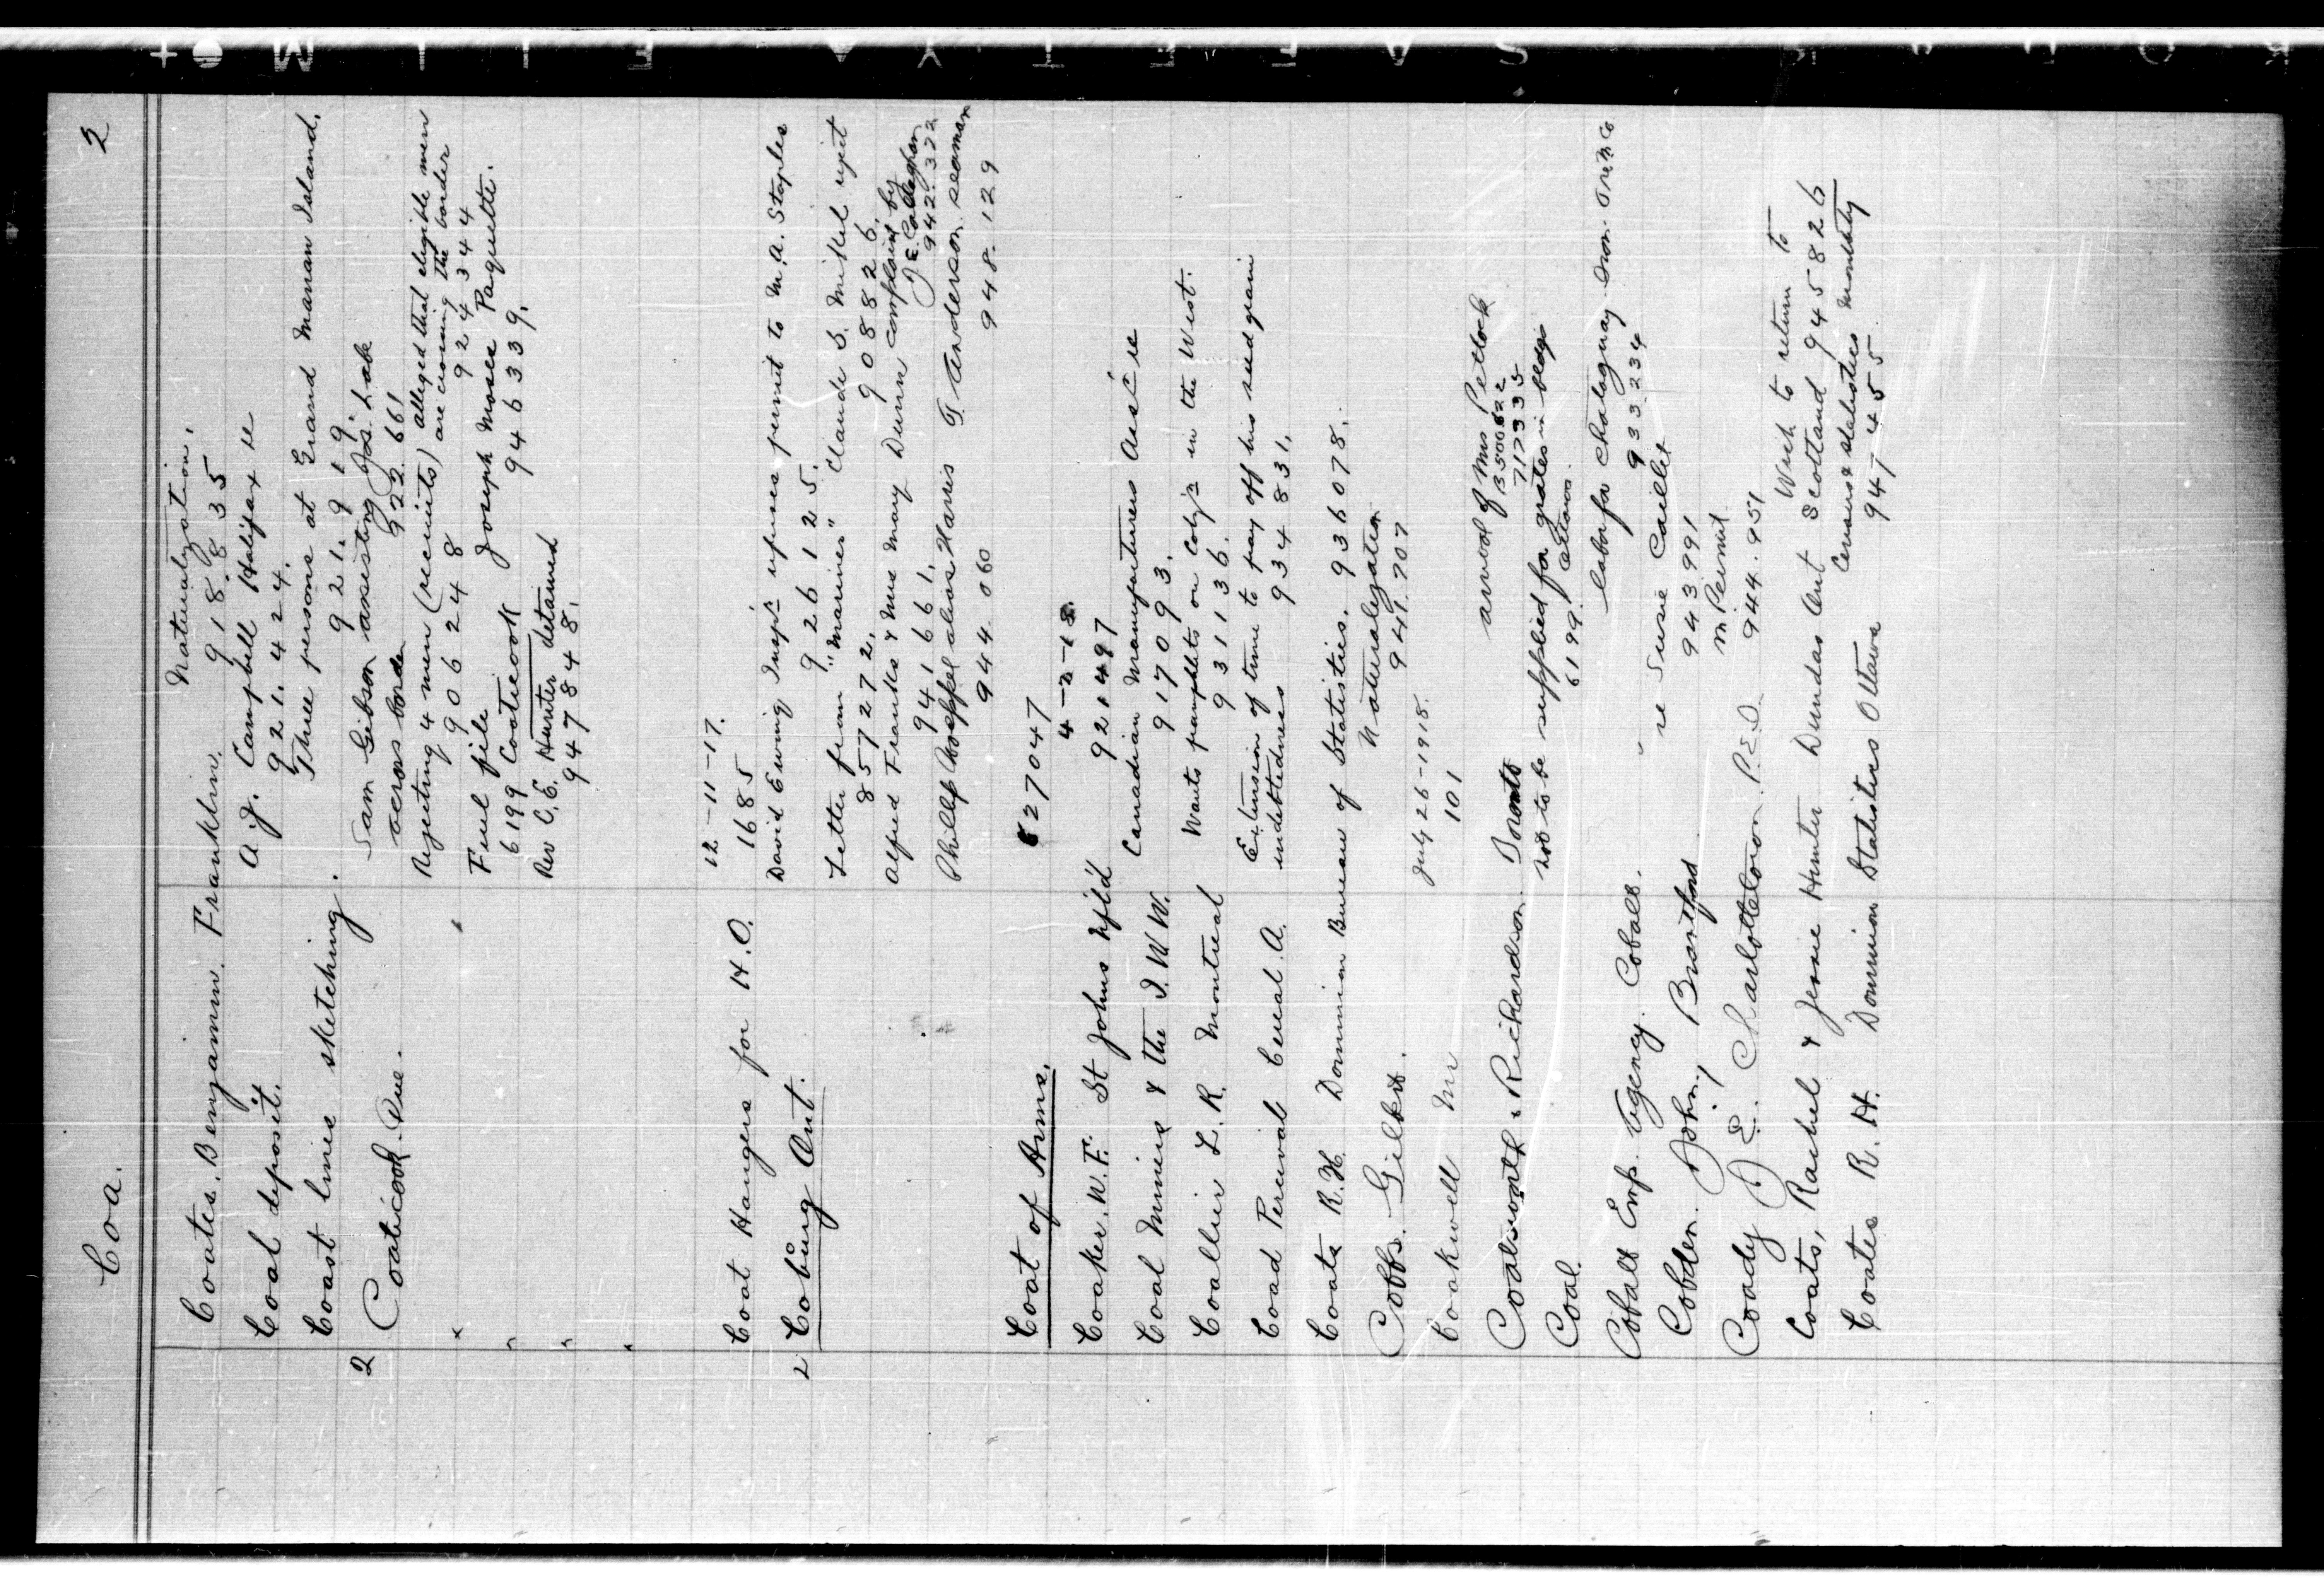 Coa.
2
Coates. Benjamin. Franklin. Naturalization.
918.835
Coal deposit. A.J. Campbell Halifax re
921.424.
Coast lines sketching. Three persons at Grand Manan Island.
921.919.
2 Coaticook. Que. Sam Gibson assisting Jos. Labe
across border 922.661
" Rejecting 4 men (recruits) alleged that eligible men
906248 are crossing the border
924344
" Fuel file Joseph Moses Paquette.
6199 Coaticook 946339.
" Rev C.E. Hunter detained
947848.
"
Coat Hangers for H.Q. 12-11-17.
1685
2 Cobourg Ont. David Ewing Inspr refuses permit to M.A. Staples
926125.
Letter from "Marines" Claude S. Mikel reject
857272. 908826.
Alfred Franks & Mrs May Dunn complaint by
941661. J E Callaghan
942.322
Phillip alias Harris G Anderson seaman
944.060 948.129
Coat of Arms. 827047
Coaker. W.F. St Johns Nfld 4-3-18.
921497
Coal Miners & the I.W.W. Canadian Manufacturers Assc re
917093.
Coallier L.R. Montreal Wants pamphlets on in the West.
931136.
Coad Percival Cereal. A. Extension of time to pay off his seed grain
indebtedness 934831.
Coats R.H. Dominion Bureau of Statistics. 936078.
Cobbs. Gilbert. Naturalization
941.707
Coakwell Mr July 26-1918.
101
Coatsworth & Richardson. Toronto of Mrs Pellock
717335
Coal. not to be supplied for grates in bldgs
6199. Ottawa.
Cobalt Emp. Agency. Cobalt. labor for
933234
Cobden. John Brantford " re Susie Caillet
943991
Coady J E. Charlottetown P.E.I. M Permit
944.951
Coats, Rachel & Jessie Hunter Dundas Ont Wish to return to
Scotland 945826
Coates R.H. Dominion Statistics Ottawa Census & statistics Monthly
947455